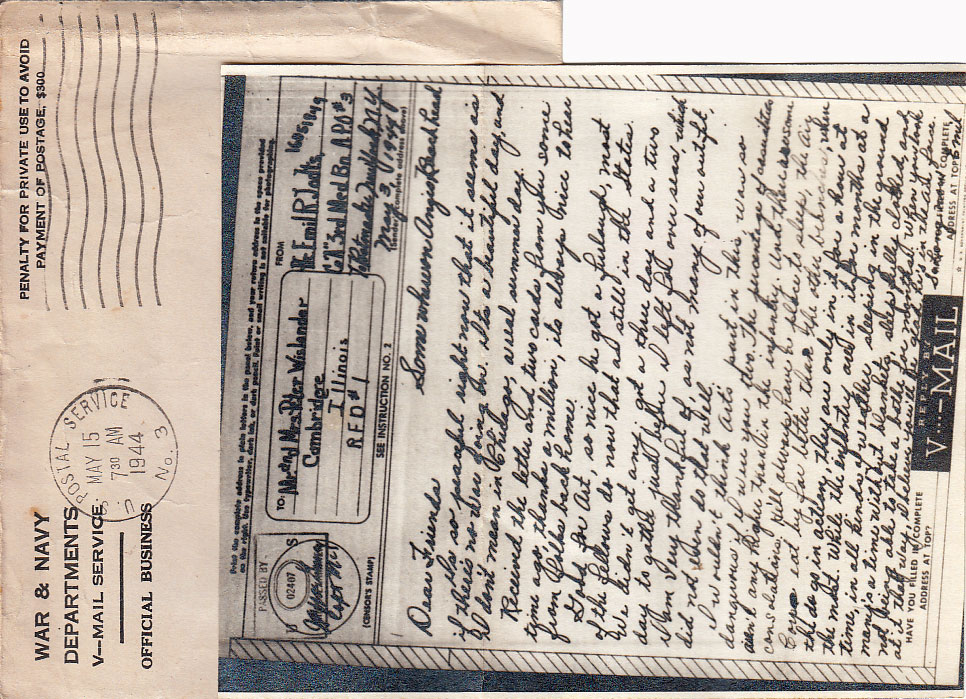 WAR & NAVY
DEPARTMENTS
V—MAIL SERVICE
OFFICIAL BUSINESS
PENALTY FOR PRIVATE USE TO AVOID
PAYMENT OF POSTAGE, $300
U S POSTAL SERVICE
MAY 15
730 AM
1944
No. 3
Print the complete address in plain letters in the panel below, and your return address in the space provided
on the right. Use typewriter, dark ink, or dark pencil. Faint or small writing is not suitable for photographing.
PASSED BY
U S
02407
Capt MC
(CENSOR'S STAMP)
TO:
Mr and Mrs. Peter Wislander
Cambridge
Illinois
RFD #1
SEE INSTRUCTION NO. 2
FROM
Emil R.
Co "A" 3rd Med Bn APO #3
℅ Postmaster New York N.Y.
(Sender's complete address above)
May 3, 1944
Somewhere on Anzio Beachhead
Dear Friends
it is so peaceful right now that it seems as
if there's no war going on. It's a beautiful day, and
I don't mean in Chicago, a real summer day.
Received the letter and two cards from you some
time ago, thanks a million, it's always nice to hear
from folks back home.
Gosh, I'm not so nice he got a furlough, most
of the fellows do now that are still in the States.
We didn't get any, got a three day and a two
day to gather just before I left P.O.E. overseas, which
I am very thankful for, as not many of our outfit,
did not even do that well.
I wouldn't think Art's part in this war so
dangerous if I were you two. The percentage of casualties
seen alright, than in the infantry. and there's some
consolation, he'll always have a place to sleep, the Air
Corps eat by far better than the other branches, when
the do go in action, they are only in it for a hour at
the most. While the infantry are in it for months at a
time, in all kinds of weather sleeping in the ground
many's a time without blankets, sleep fully clothed, and
not being able to take a bath for months. When you look
at it that way, I believe you'll be glad he's in the air force.
HAVE YOU FILLED IN COMPLETE
ADDRESS AT TOP?
REPLY BY
V···—MAIL
COMPLETE
ADDRESS AT TOP?